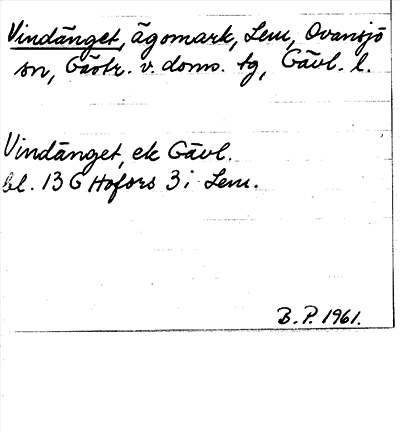 Vindänget, ägomark, Lem, Ovansjö
sn, Gästr. v. doms. tg, Gävl. l.
Vindänget, ek Gävl.
bl. 13 G Hofors 3 i Lem.
B. P. 1961.